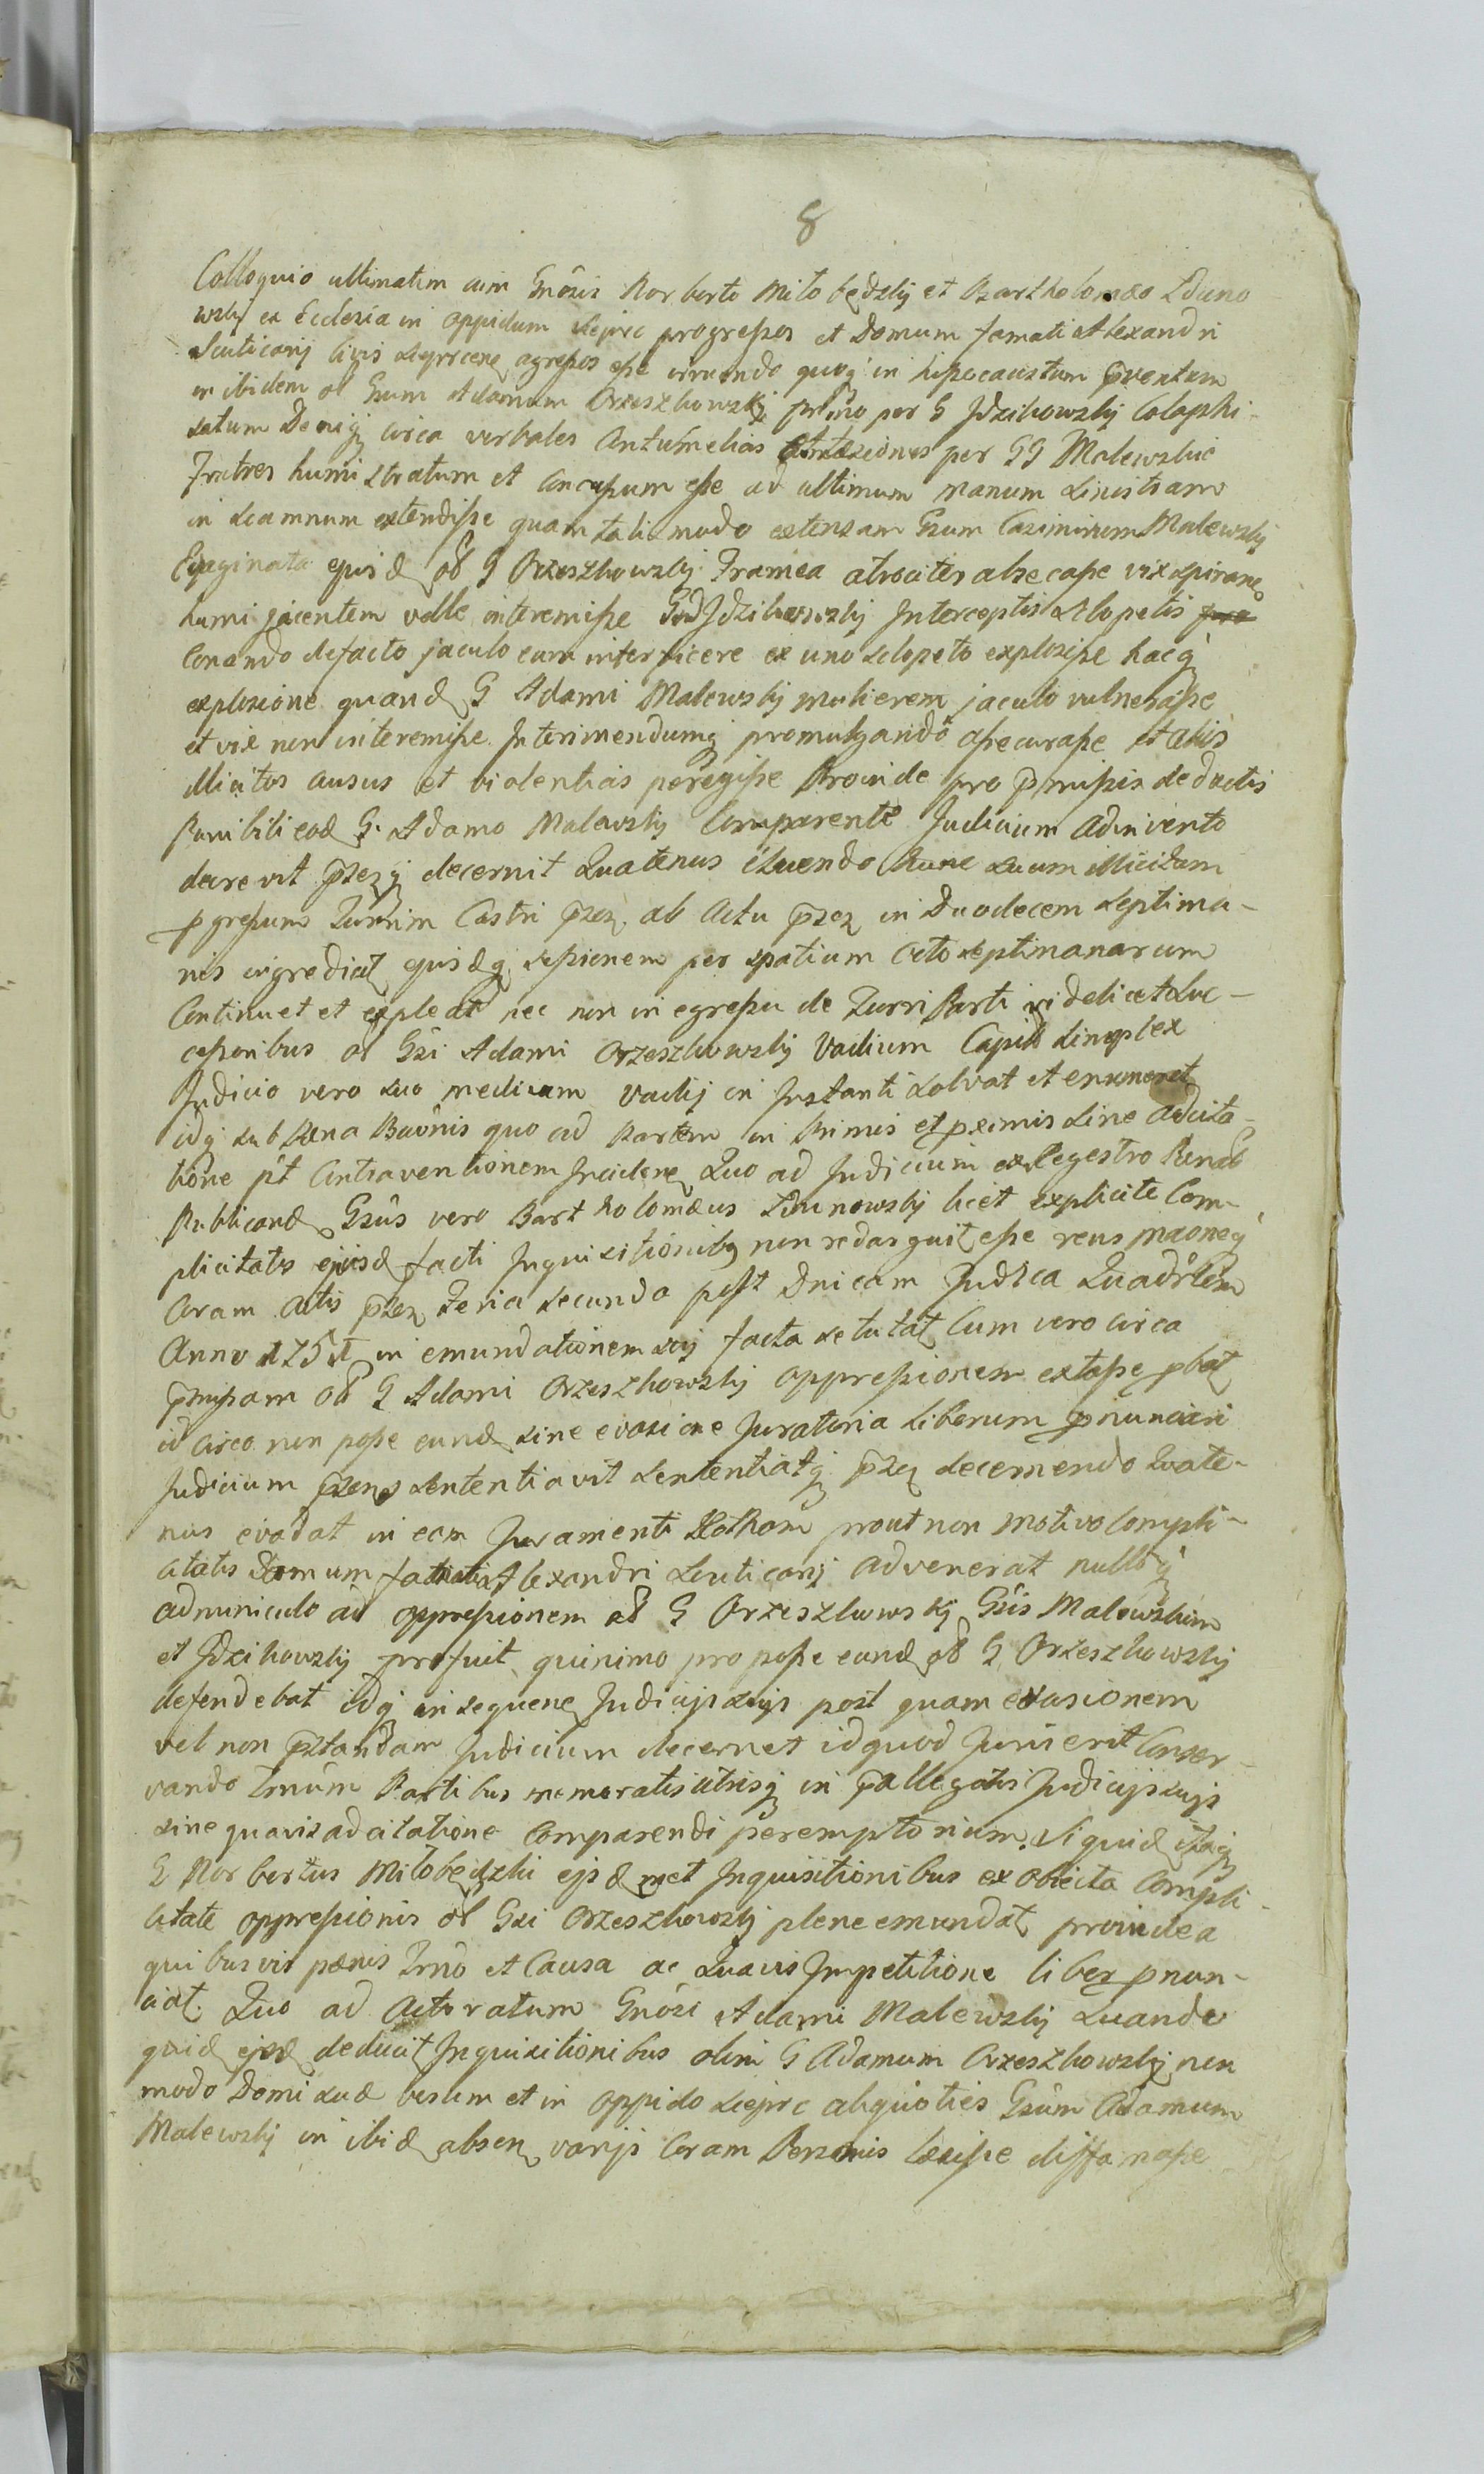 8
Colloquio ultimatim cum Gnosis Norberto Miłobędzkij et Bartholomæo Zduno
wskij ex Ecclesia in oppidum Sieprc progressos et Domum famati Alexandri
Scuticarij civis Sieprcens agressos esse irruendo quoq in hipocaustum pventum
in ibidem ol Gsum Adamum Orzeszkowskij primo per G Jdzikowskij Colaphi-
satum Deniq circa verbales Contumelias per GG Malewskie
Fratres humi stratum et Concussum esse ad ultimum manum sinistram
in scamnum extendisse quam tali modo extensam Gsum Casimirum Malewskij
Evaginata ejusd ol G Orzeszkowskij Framea atrociter absecasse vix spirans
humi jacentem velle interemisse Gsus Jdzikowskij Interceptis Sclopetis
Conando defacto jaculo eum interficere ex uno sclopeto explosisse hacq
explosione quand G Adami Malewskij mulierem jaculo vulnerasse
et vix non interemisse Interimendumq promulgando assecurasse et aliis
illicitos ausus et violentias peregisse Proinde pro pmissis deductis
Punibili eod G. Adamo Malewskij Comparente Judicium adinvento
decrevit pzesq decernit Quatenus eluendo hunc suum illicitum
pgressum Turrim Castri pzes ab Actu pzes in Duodecem septima-
nis ingrediat ejusdq sessionem per spatium octo septimanarum
Continuet et expleat nec non in egressu de Turri Parti videlicet suc-
cessoribus ol Gsi Adami Orzeszkowskij Vadium Capitis simplex
Judicio vero suo medium vadij in Instanti solvat et enumeret
idq sub Pæna Banonis quo ad Partem in Primis et pximis sine adcita-
tione pt Contraventionem Incidens Quo ad Judicium ex Regestro Pænal
Publicand Gsus vero Bartholomæus Zdunowskij licet explicite Com-
plicitatis ejusd facti Inquisitionibq non redarguit esse reus
Coram Actis pzes Feria secunda post Dnicam Judica Quadrlem
Anno 1751 in emundationem sui facta se tutat Cum vero circa
pmissam ol G Adami Orzeszkowskij oppressionem extasse pbat
id circo non posse eund sine evasione Juratoria Liberum pnunciari
Judicium pzens sententiavit sententiatq pzes decernendo Quate-
nus evadat in eam Juramenti Rotham prout non motivo Compli-
citatis Domum famati Alexandri Scuticarij advenerat nulloq
adminiculo ad oppressionem ol G Orzeszkowskij Gsis Malewskim
et Jdzikowskij profuit quinimo pro posse eund ol G Orzeszkowskij
defendebat idq in sequens Judicijs suijs post quam evasionem
vel non pstandam Judicium decernet id quod Juris erit Conser-
vando Trnum Partibus memoratis utrisq in pallegatis Judicijs suijs
sine quavis adcitatione Comparendi peremptorium. Siquid itaq
G Norbertus Miłobędzki ejsdmet Inquisitionibus ex obiecta Compli-
citate oppressionis ol Gsi Orzeszkowskij plene emundat proinde a
quibusvis pænis Trno et Causa ac Quavis Impetitione liber pnun-
ciat. Quo ad Actoratum Gnosi Adami Malewskij Quando
quid ejsd deducit Inquisitionibus olim G Adamum Orzeszkowskij non
modo Domi suæ verum et in oppido Siejprc aliquoties Gsum Adamum
Malewskij in ibid absen varijs Coram Personis læsisse diffamasse